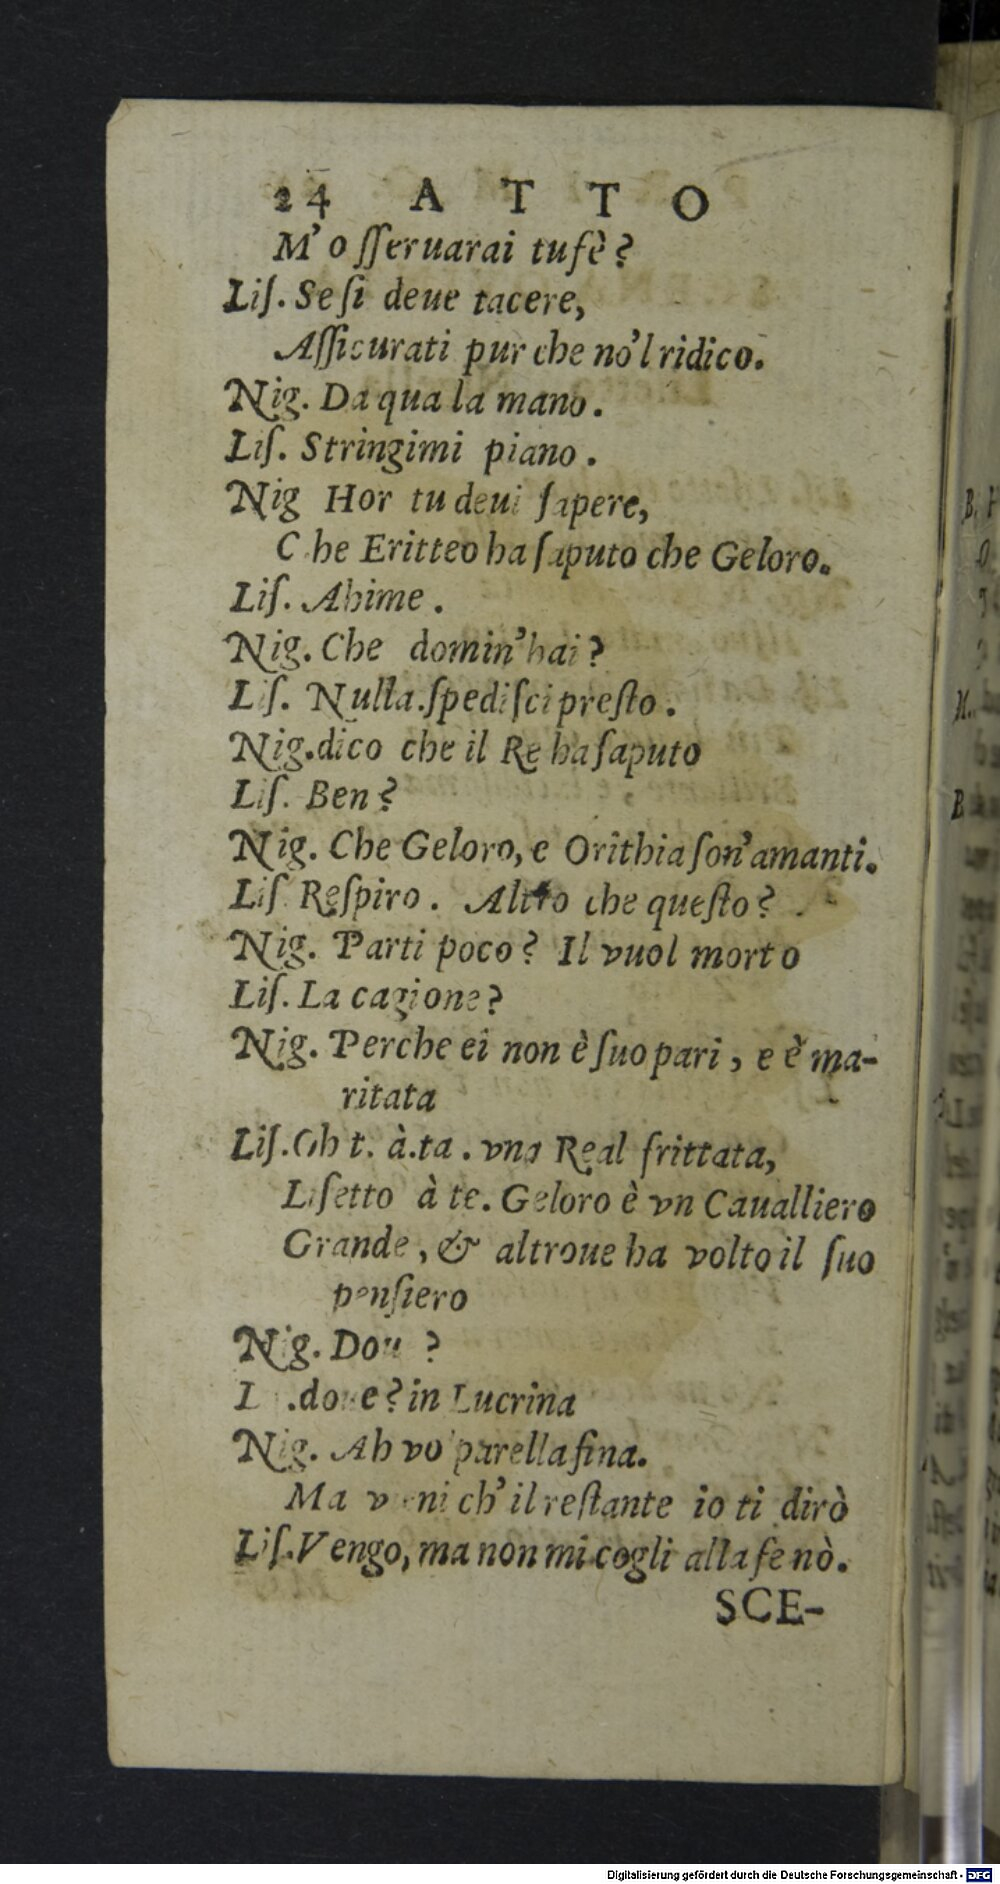 24 ATTO
M'osseruarai tu fè?
Liſ. Se ſi deue tacere,
Aſſicurati pur che no'l ridico.
Nig. Da qua la mano.
Liſ. Stringimi piano.
Nig Hor tu deui ſapere,
Che Eritteo ha ſaputo che Geloro.
Liſ. Ahime.
Nig. Che domin'hai?
Liſ. Nulla. ſpediſci preſto.
Nig. dico che il Re ha ſaputo
Liſ. Ben?
Nig. Che Geloro, e Orithia ſon'amanti.
Liſ Reſpiro. Altro che queſto?
Nig. Parti poco? Il vuol morto
Liſ. La cagione?
Nig. Perche ei non è ſuo pari, e è ma-
ritata
Liſ. Oh t. à. ta. vna Real frittata,
Liſetto à te. Geloro è vn Caualliero
Grande, & altroue ha volto il ſuo
penſiero
Nig. Dou ?
L .doue? in Lucrina
Nig. Ah vo' parella fina.
Ma vieni ch'il reſtante io ti dirò
Liſ. Vengo, ma non mi cogli alla fe nò.
SCE-
Digitalisierung gefördert durch die Deutsche Forschungsgemeinschaft - DFG